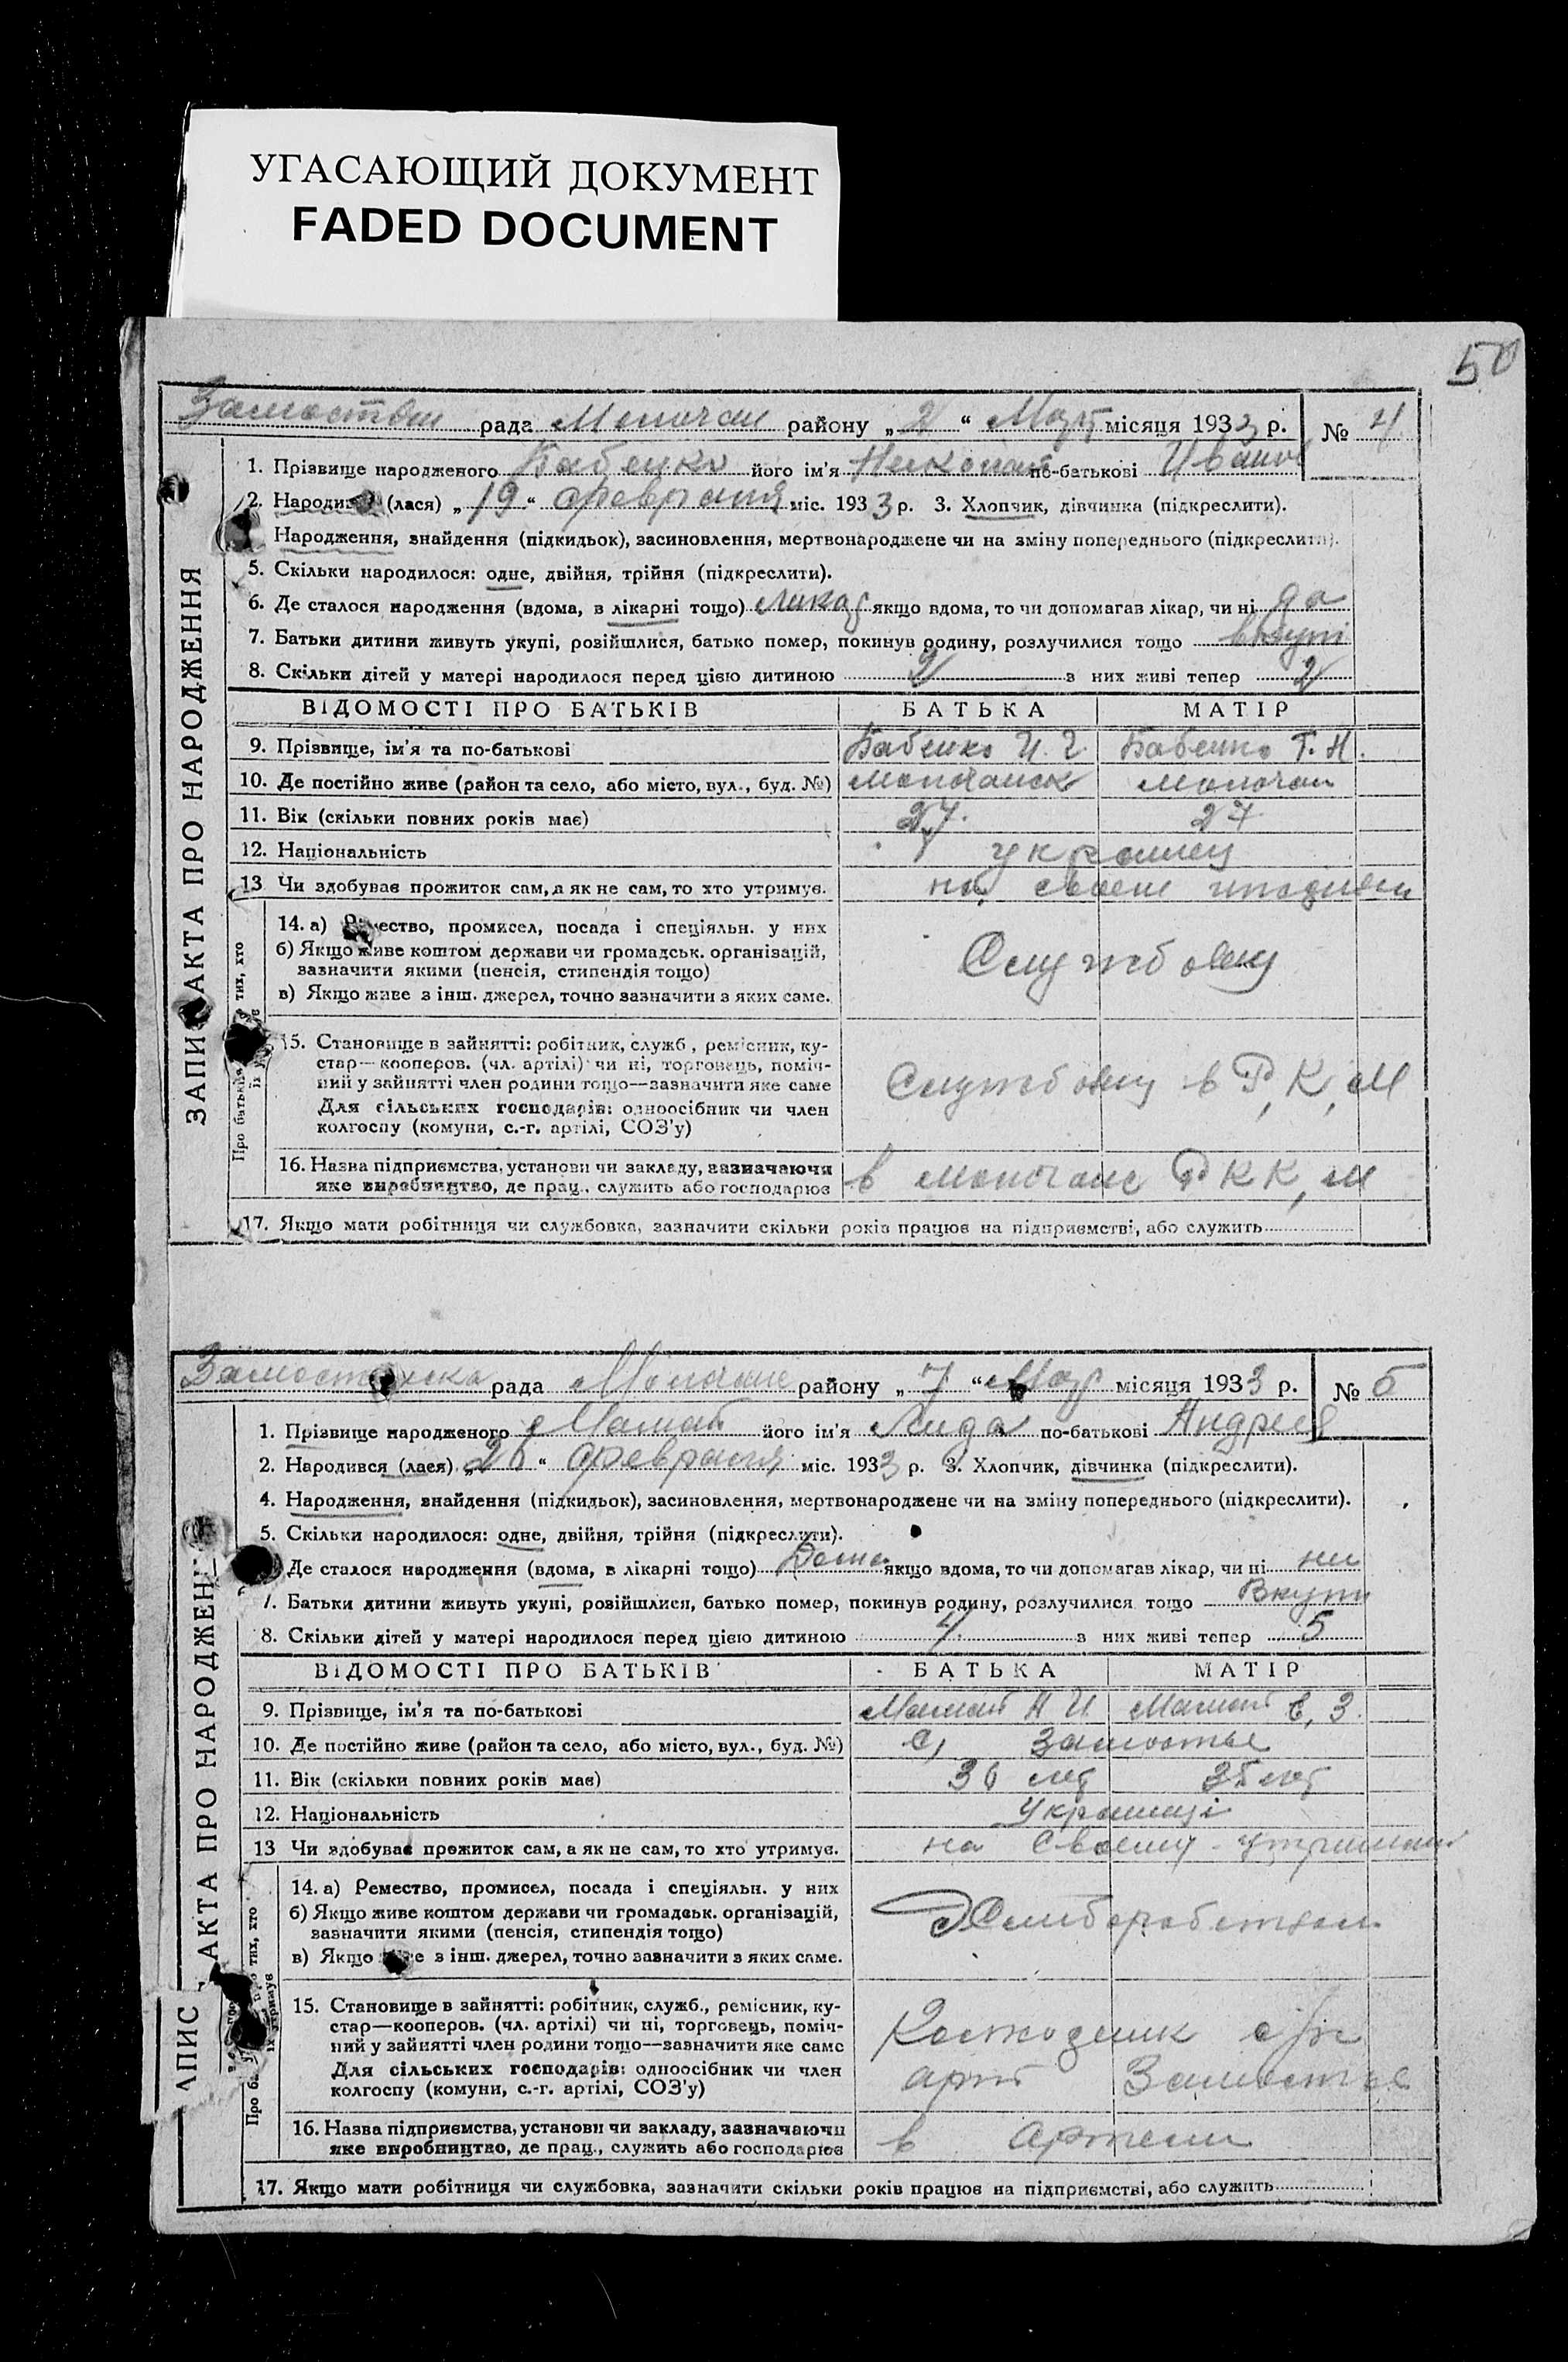 УГАСАЮЩИЙ ДОКУМЕНТ
FADED DOCUMENT
50
рада Молочан району „2“ Март місяця 1933 р. № 4
1. Прізвище народженого Бабенко його ім'я Николай по-батькові Иванов
2. (лася) „19“ февраля міс. 1933 р. 3. Хлопчик, дівчинка (підкреслити).
Народження, знайдення (підкидьок), засиновлення, мертвонароджене чи на зміну попереднього (підкреслити).
5. Скільки народилося: одне, двійня, трійня (підкреслити).
6. Де сталося народження (вдома, в лікарні тощо) якщо вдома, то чи допомагав лікар, чи ні да
7. Батьки дитини живуть укупі, розійшлися, батько помер, покинув родину, розлучилися тощо вкупі
8. Скільки дітей у матері народилося перед цією дитиною 2 з них живі тепер 2
ВІДОМОСТІ ПРО БАТЬКІВ БАТЬКА МАТІР
9. Прізвище, ім'я та по-батькові Бабенко И. Бабенко Т. Н.
10. Де постійно живе (район та село, або місто, вул., буд. №) Молочанск Молочан
11. Вік (скільки повних років має) 27. 27
12. Національність
13 Чи здобуває прожиток сам, а як не сам, то хто утримує. на своем
14. а) Ремество, промисел, посада і спеціяльн. у них
б) Якщо живе коштом держави чи громадськ. організацій,
зазначити якими (пенсія, стипендія тощо)
в) Якщо живе з інш. джерел, точно зазначити з яких саме.
15. Становище в зайнятті: робітник, служб., ремісник, ку-
стар—кооперов. (чл. артілі) чи ні, торговець, поміч-
ний у зайнятті член родини тощо—зазначити яке саме
Для сільських господарів: одноосібник чи член
колгоспу (комуни, с.-г. артілі, СОЗ'у)
в Р, К, М
16. Назва підприємства, установи чи закладу, зазначаючи
яке виробництво, де прац., служить або господарює
в РКК, М
17. Якщо мати робітниця чи службовка, зазначити скільки років працює на підприємстві, або служить
ЗАПИС АКТА ПРО НАРОДЖЕННЯ
рада району „7“ місяця 1933 р. № 5
1. Прізвище народженого Мамай його ім'я Лида по-батькові Андрея
2. Народився (лася) „26“ февраля міс. 1933 р. 3. Хлопчик, дівчинка (підкреслити).
4. Народження, знайдення (підкидьок), засиновлення, мертвонароджене чи на зміну попереднього (підкреслити).
5. Скільки народилося: одне, двійня, трійня (підкреслити).
Де сталося народження (вдома, в лікарні тощо) Дома якщо вдома, то чи допомагав лікар, чи ні ни
7. Батьки дитини живуть укупі, розійшлися, батько помер, покинув родину, розлучилися тощо Вкупи
8. Скільки дітей у матері народилося перед цією дитиною 7 з них живі тепер 5
ВІДОМОСТІ ПРО БАТЬКІВ БАТЬКА МАТІР
9. Прізвище, ім'я та по-батькові Мамай А И Мамай Е, З.
10. Де постійно живе (район та село, або місто, вул., буд. №) с, Замостье
11. Вік (скільки повних років має) 36 лет 35 лет
12. Національність Українці
13 Чи здобуває прожиток сам, а як не сам, то хто утримує. на своему
14. а) Ремество, промисел, посада і спеціяльн. у них
б) Якщо живе коштом держави чи громадськ. організацій,
зазначити якими (пенсія, стипендія тощо)
в) Якщо з інш. джерел, точно зазначити з яких саме.
15. Становище в зайнятті: робітник, служб., ремісник, ку-
стар—кооперов. (чл. артілі) чи ні, торговець, поміч-
ний у зайнятті член родини тощо—зазначити яке саме
Для сільських господарів: одноосібник чи член
колгоспу (комуни, с.-г. артілі, СОЗ'у)
арт Замостье
16. Назва підприємства, установи чи закладу, зазначаючи
яке виробництво, де прац., служить або господарює
в Артели
17. Якщо мати робітниця чи службовка, зазначити скільки років працює на підприємстві, або служить